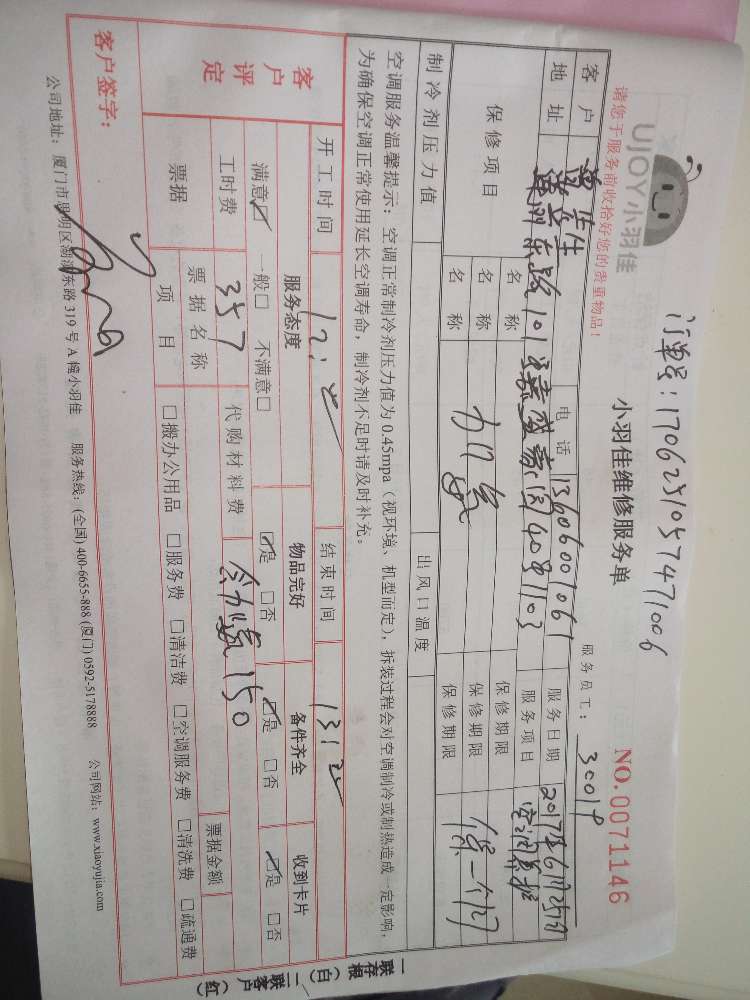 订单号:1706251057471006
UJOY小羽佳
小羽佳维修服务单
NO.0071146
请您于服务前收拾好您的贵重物品!
服务员工: 30019
客户 电话 13606001061 服务日期 2017年6月25日
地址 东路101 4081103 服务项目 空调
保修项目
名称 保修期限
名称 加氟 保修期限 保一个月
名称 保修期限
制冷剂压力值 出风口温度
空调服务温馨提示:空调正常制冷剂压力值为0.45mpa(视环境、机型而定),拆装过程会对空调制冷或制热造成一定影响,
为确保空调正常使用延长空调寿命,制冷剂不足时请及时补充。
开工时间 结束时间
客户评定
服务态度 物品完好 备件齐全 收到卡片
满意☑ 一般□ 不满意□ ☑是 □否 ☑是 □否 ☑是 □否
工时费 357 代购材料费 含加氟150
票据 票据名称 票据金额
项目 □搬办公用品 □服务费 □清洁费 □空调服务费 □清洗费 □疏通费
客户签字:
公司地址:厦门市思明区湖滨东路319号A幢小羽佳 服务热线:(全国)400-6655-888(厦门)0592-5178888 公司网站:www.xiaoyujia.com
一联存根(白) 二联客户(红)